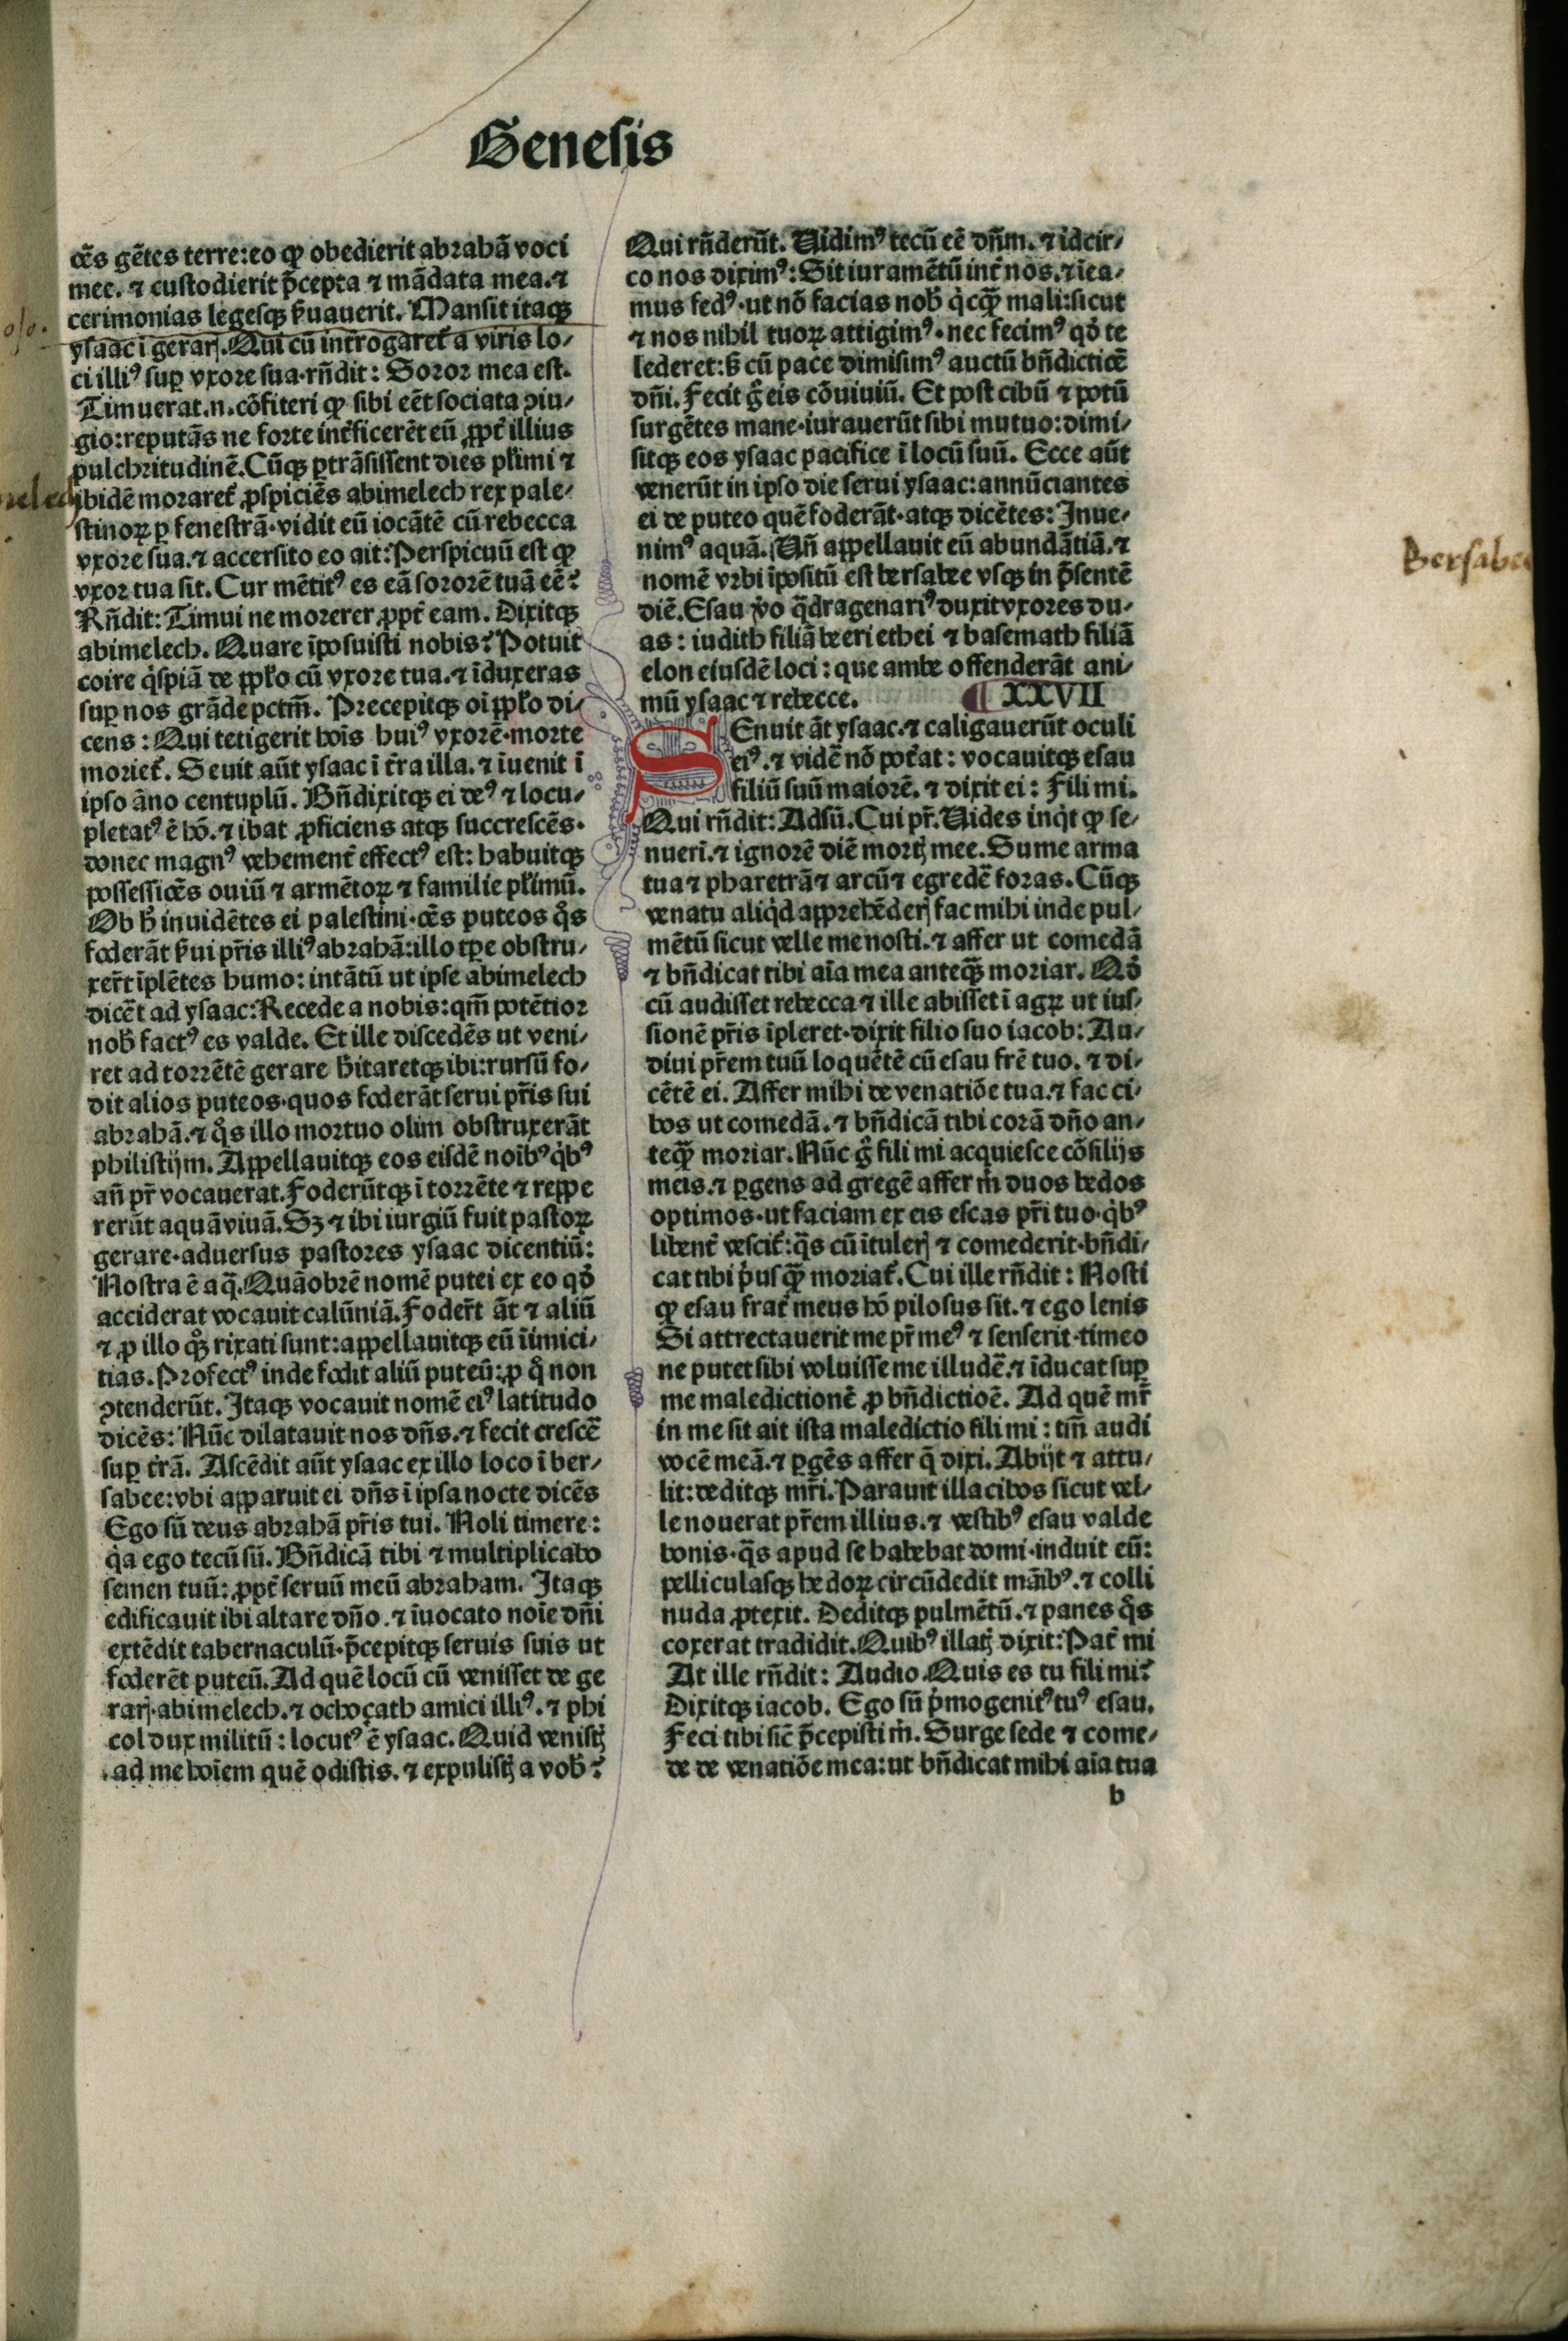 Genesis
oēs gētes terre:eo ꝙ obedierit abrahā voci
mee. ⁊ custodierit p̄cepta ⁊ mādata mea.⁊
cerimonias legesqꝫ ẜuauerit. Mansit itaqꝫ
ysaac ī gerarꝭ. Qui cū int̄rogaret̄ a viris lo/
ci illiꝰ suꝑ vxore sua·rn̄dit: Soror mea est.
Timuerat.n.cōfiteri ꝙ sibi eēt sociata ꝯiu/
gio:reputās ne forte int̄ficerēt eū ꝓpt̄ illius
pulchritudinē.Cūqꝫ ꝑtrāsissent dies pl̄imi ⁊
ibidē moraret̄ ꝓspiciēs abimelech rex pale/
stinoꝝ ꝑ fenestrā·vidit eū iocātē cū rebecca
vxore sua.⁊ accersito eo ait:Perspicuū est ꝙ
vxor tua sit. Cur mētitꝰ es eā sororē tuā eē?
Rn̄dit: Timui ne morerer ꝓpt̄ eam. Dixitqꝫ
abimelech. Quare īposuisti nobis? Potuit
coire q̇spiā de ꝓpl̄o cū vxore tua.⁊ īduxeras
suꝑ nos grāde pctm̄. Precepitqꝫ oī ꝓpl̄o di/
cens: Qui tetigerit hoīs huiꝰ vxorē·morte
moriet̄. Seuit aūt ysaac ī t̄ra illa.⁊ īuenit ī
ipso āno centuplū. Bn̄dixitqꝫ ei deꝰ ⁊ locu/
pletatꝰ ē hō.⁊ ibat ꝓficiens atqꝫ succrescēs·
donec magnꝰ vehement̄ effectꝰ est: habuitqꝫ
possessiōēs ouiū ⁊ armētoꝝ ⁊ familie pl̄imū.
Ob h̄ inuidētes ei palestini·oēs puteos q̊s
foderāt ẜui pr̄is illiꝰ abrahā:illo tꝑe obstru/
xer̄t īplētes humo: intātū ut ipse abimelech
dicēt ad ysaac:Recede a nobis:qm̄ potētior
nob̄ factꝰ es valde. Et ille discedēs ut veni/
ret ad torrētē gerare h̄itaretqꝫ ibi:rursū fo/
dit alios puteos·quos foderāt serui pr̄is sui
abrahā.⁊ q̊s illo mortuo olim obstruxerāt
philistijm. Appellauitqꝫ eos eisdē noībꝰ q̇bꝰ
an̄ pr̄ vocauerat.Foderūtqꝫ ī torrēte ⁊ reppe
rerūt aquā viuā.Sꝫ ⁊ ibi iurgiū fuit pastoꝝ
gerare·aduersus pastores ysaac dicentiū:
Nostra ē aq̄.Quāobrē nomē putei ex eo qd̓
acciderat vocauit calūniā.Foder̄t āt ⁊ aliū
⁊ ꝓ illo qq̊ꝫ rixati sunt:appellauitqꝫ eū īimici/
tias.Profectꝰ inde fodit aliū puteū:ꝓ q̊ non
ꝯtenderūt. Itaqꝫ vocauit nomē eiꝰ latitudo
dicēs: Nūc dilatauit nos dn̄s.⁊ fecit crescē
suꝑ t̄rā. Ascēdit aūt ysaac ex illo loco ī ber/
sabee:vbi apparuit ei dn̄s ī ipsa nocte dicēs
Ego sū deus abrahā pr̄is tui. Noli timere:
q̇a ego tecū sū. Bn̄dicā tibi ⁊ multiplicabo
semen tuū: ꝓpt̄ seruū meū abraham. Itaqꝫ
edificauit ibi altare dn̄o.⁊ īuocato noīe dn̄i
extēdit tabernaculū·p̄cepitqꝫ seruis suis ut
foderēt puteū.Ad quē locū cū venisset de ge
rarꝭ·abimelech.⁊ ochoçath amici illiꝰ.⁊ phi
col dux militū: locutꝰ ē ysaac. Quid venistꝭ
ad me hoīem quē odistis.⁊ expulistꝭ a vob̄?
Qui rn̄derūt. Vidimꝰ tecū eē dn̄m.⁊ idcir/
co nos diximꝰ: Sit iuramētū int̄ nos.⁊ īea/
mus fedꝰ·ut nō facias nob̄ q̇cꝙ̄ mali:sicut
⁊ nos nihil tuoꝝ attigimꝰ·nec fecimꝰ qd̓ te
lederet:ß cū pace dimisimꝰ auctū bn̄dictiōē
dn̄i. Fecit g̊ eis cōuiuiū. Et post cibū ⁊ potū
surgētes mane·iurauerūt sibi mutuo:dimi/
sitqꝫ eos ysaac pacifice ī locū suū. Ecce aūt
venerūt in ipso die serui ysaac:annūciantes
ei de puteo quē foderāt·atqꝫ dicētes: Inue/
nimꝰ aquā. Vn̄ appellauit eū abundātiā.⁊
nomē vrbi īpositū est bersabee vsqꝫ in p̄sentē
diē.Esau v̊o q̄dragenariꝰ duxit vxores du/
as: iudith filiā beeri ethei ⁊ basemath filiā
elon eiusdē loci: que ambe offenderāt ani/
mū ysaac ⁊ rebecce. ¶ XXVII
Senuit āt ysaac.⁊ caligauerūt oculi
eiꝰ.⁊ vidē nō pot̄at: vocauitqꝫ esau
filiū suū maiorē.⁊ dixit ei: Fili mi.
Qui rn̄dit: Adsū. Cui pr̄. Vides inq̇t ꝙ se/
nueri.⁊ ignorē diē mortꝭ mee. Sume arma
tua ⁊ pharetrā ⁊ arcū ⁊ egredē foras. Cūqꝫ
venatu aliq̇d apprehēderꝭ fac mihi inde pul/
mētū sicut velle me nosti.⁊ affer ut comedā
⁊ bn̄dicat tibi aīa mea anteꝙ̄ moriar. Qd̓
cū audisset rebecca ⁊ ille abisset ī agꝝ ut ius/
sionē pr̄is īpleret·dixit filio suo iacob: Au/
diui pr̄em tuū loquētē cū esau fr̄e tuo. ⁊ di/
cētē ei. Affer mihi de venatiōe tua.⁊ fac ci/
bos ut comedā.⁊ bn̄dicā tibi corā dn̄o an/
teꝙ̄ moriar. Nūc g̊ fili mi acquiesce cōsilijs
meis.⁊ ꝑgens ad gregē affer m̓ duos hedos
optimos·ut faciam ex eis escas pr̄i tuo·q̇bꝰ
libent̄ vescit̄:q̄s cū ītulerꝭ ⁊ comederit·bn̄di/
cat tibi p̓usꝙ̄ moriat̄. Cui ille rn̄dit: Nosti
ꝙ esau frat̄ meus hō pilosus sit.⁊ ego lenis
Si attrectauerit me pr̄ meꝰ ⁊ senserit·timeo
ne putet sibi voluisse me illudē.⁊ īducat suꝑ
me maledictionē ꝓ bn̄dictiōe. Ad quē mr̄
in me sit ait ista maledictio fili mi: tm̄ audi
vocē meā.⁊ ꝑgēs affer q̄ dixi. Abijt ⁊ attu/
lit:deditqꝫ mr̄i. Parauit illa cibos sicut vel/
le nouerat pr̄em illius.⁊ vestibꝰ esau valde
bonis·q̄s apud se habebat domi·induit eū:
pelliculasqꝫ hedoꝝ circūdedit māibꝰ.⁊ colli
nuda ꝓtexit. Deditqꝫ pulmētū.⁊ panes q̊s
coxerat tradidit.Quibꝰ illatꝭ dixit: Pat̄ mi
At ille rn̄dit: Audio. Quis es tu fili mi?
Dixitqꝫ iacob. Ego sū p̓mogenitꝰ tuꝰ esau.
Feci tibi sic̄ p̄cepisti m̓. Surge sede ⁊ come/
de de venatiōe mea:ut bn̄dicat mihi aīa tua
b
Bersabee